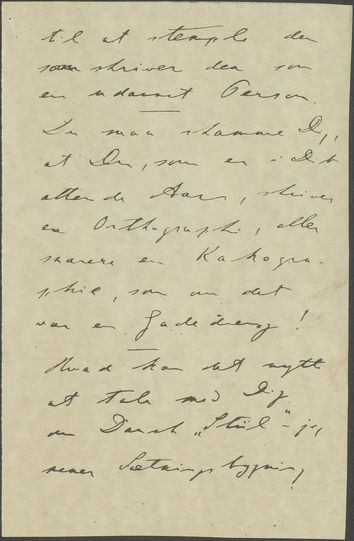 til at stemple den
som skriver den som
en udannet Person.
Du maa skamme Dig,
at Du, som er i Dit
ottende Aar, skriver
en Orthographi, eller
snarere en Kakogra-
phie, som om det
var en Gadedreng!
Hvad kan det nytte
at tale med Dig
om Dansk „Stiil" – jeg
mener Sætningsbygning